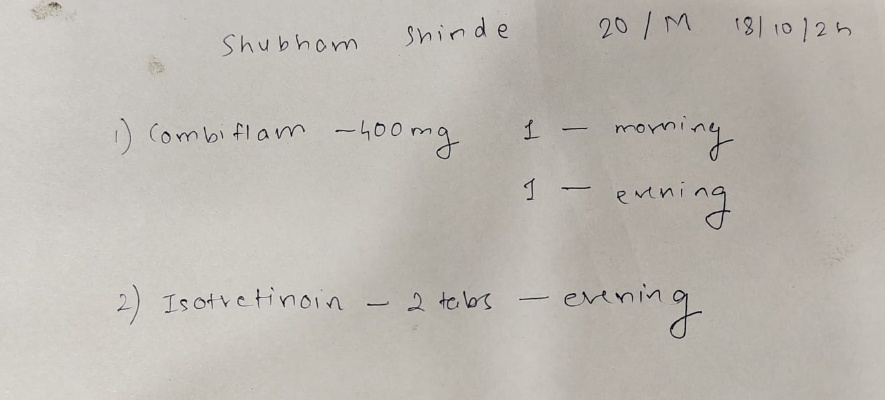 Shubham Shinde 20 / M 18/10/24
1) Combiflam - 400 mg 1 - morning
1 - evening
2) Isotretinoin - 2 tabs - evening